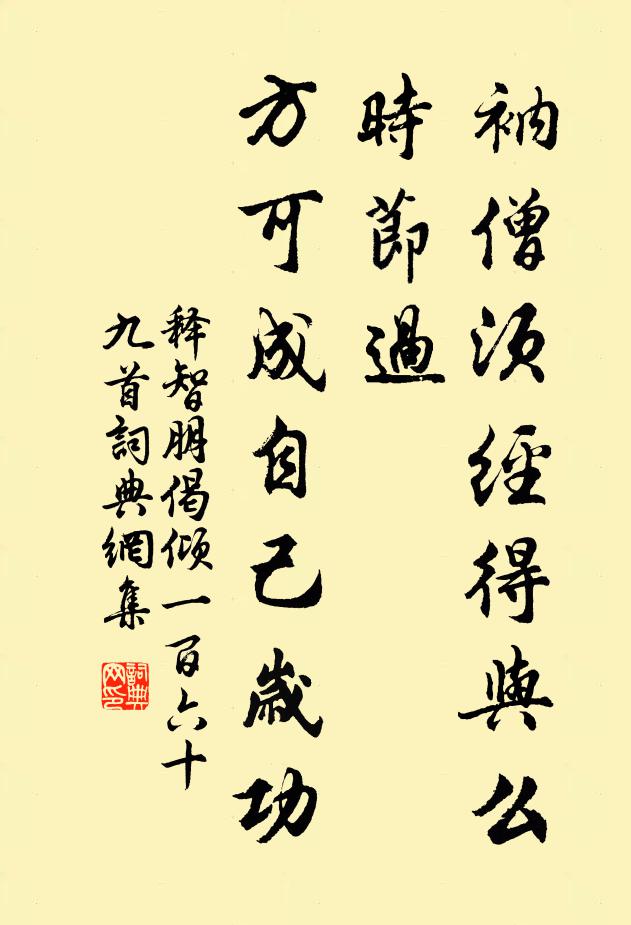 衲僧須經得與么
時節過
方可成自己歲功
释智朋偈傾一百六十
九首詞典網集
詞典網印